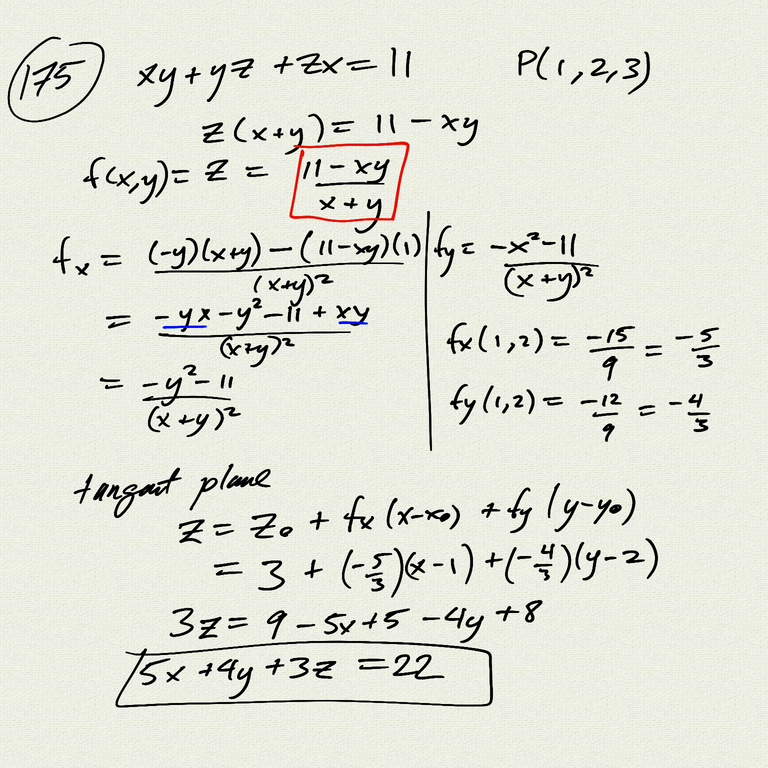 175 xy + yz + zx = 11 P(1, 2, 3)
z(x+y) = 11 - xy
f(x,y) = z = \frac{11 - xy}{x + y}
f_x = \frac{(-y)(x+y) - (11-xy)(1)}{(x+y)^2}
= \frac{-yx - y^2 - 11 + xy}{(x+y)^2}
= \frac{-y^2 - 11}{(x+y)^2}
f_y = \frac{-x^2 - 11}{(x+y)^2}
f_x(1,2) = \frac{-15}{9} = \frac{-5}{3}
f_y(1,2) = \frac{-12}{9} = \frac{-4}{3}
tangent plane
z = z_0 + f_x(x-x_0) + f_y(y-y_0)
= 3 + (-\frac{5}{3})(x-1) + (-\frac{4}{3})(y-2)
3z = 9 - 5x + 5 - 4y + 8
5x + 4y + 3z = 22